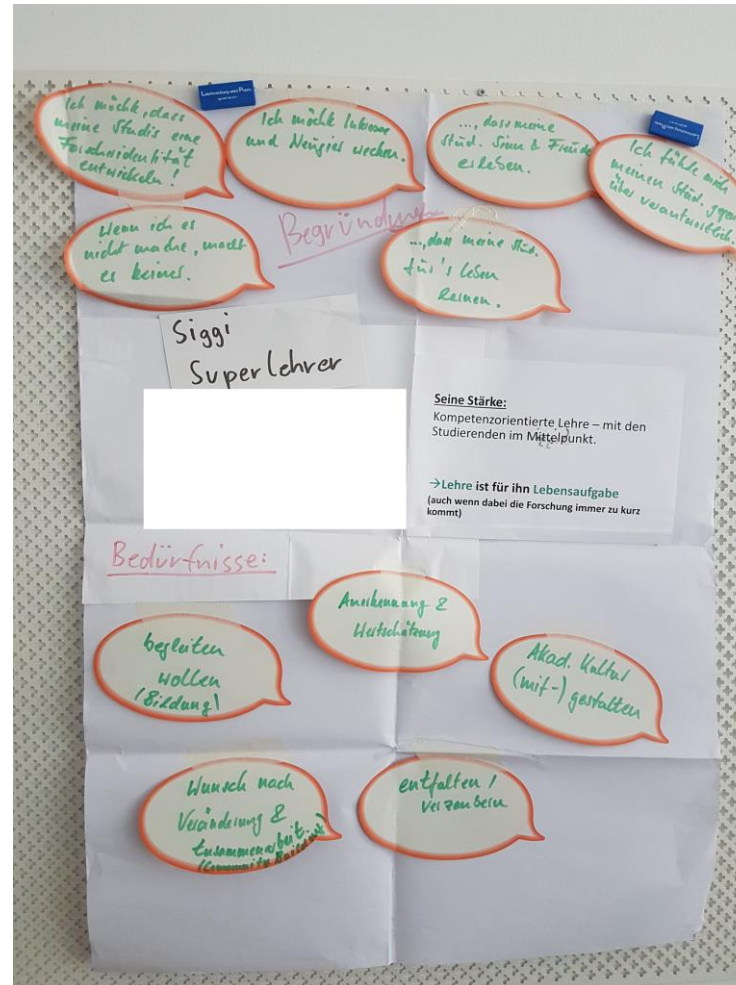 Ich möchte, dass
meine Studis eine
Forscheridentität
entwickeln!
Ich möchte Interesse
und Neugier wecken.
..., dass meine
Stud. Sinn & Freude
erleben.
Ich fühle mich
meinen Stud. gegen
über verantwortlich.
Wenn ich es
nicht mache, macht
es keiner.
Begründung
..., dass meine Stud.
für's Leben
lernen.
Siggi
Superlehrer
Seine Stärke:
Kompetenzorientierte Lehre – mit den
Studierenden im Mittelpunkt.
→Lehre ist für ihn Lebensaufgabe
(auch wenn dabei die Forschung immer zu kurz
kommt)
Bedürfnisse:
Anerkennung &
Wertschätzung
begleiten
wollen
(Bildung)
Akad. Kultur
(mit-) gestalten
Wunsch nach
Veränderung &
Zusammenarbeit.
(Community
entfalten /
verzaubern